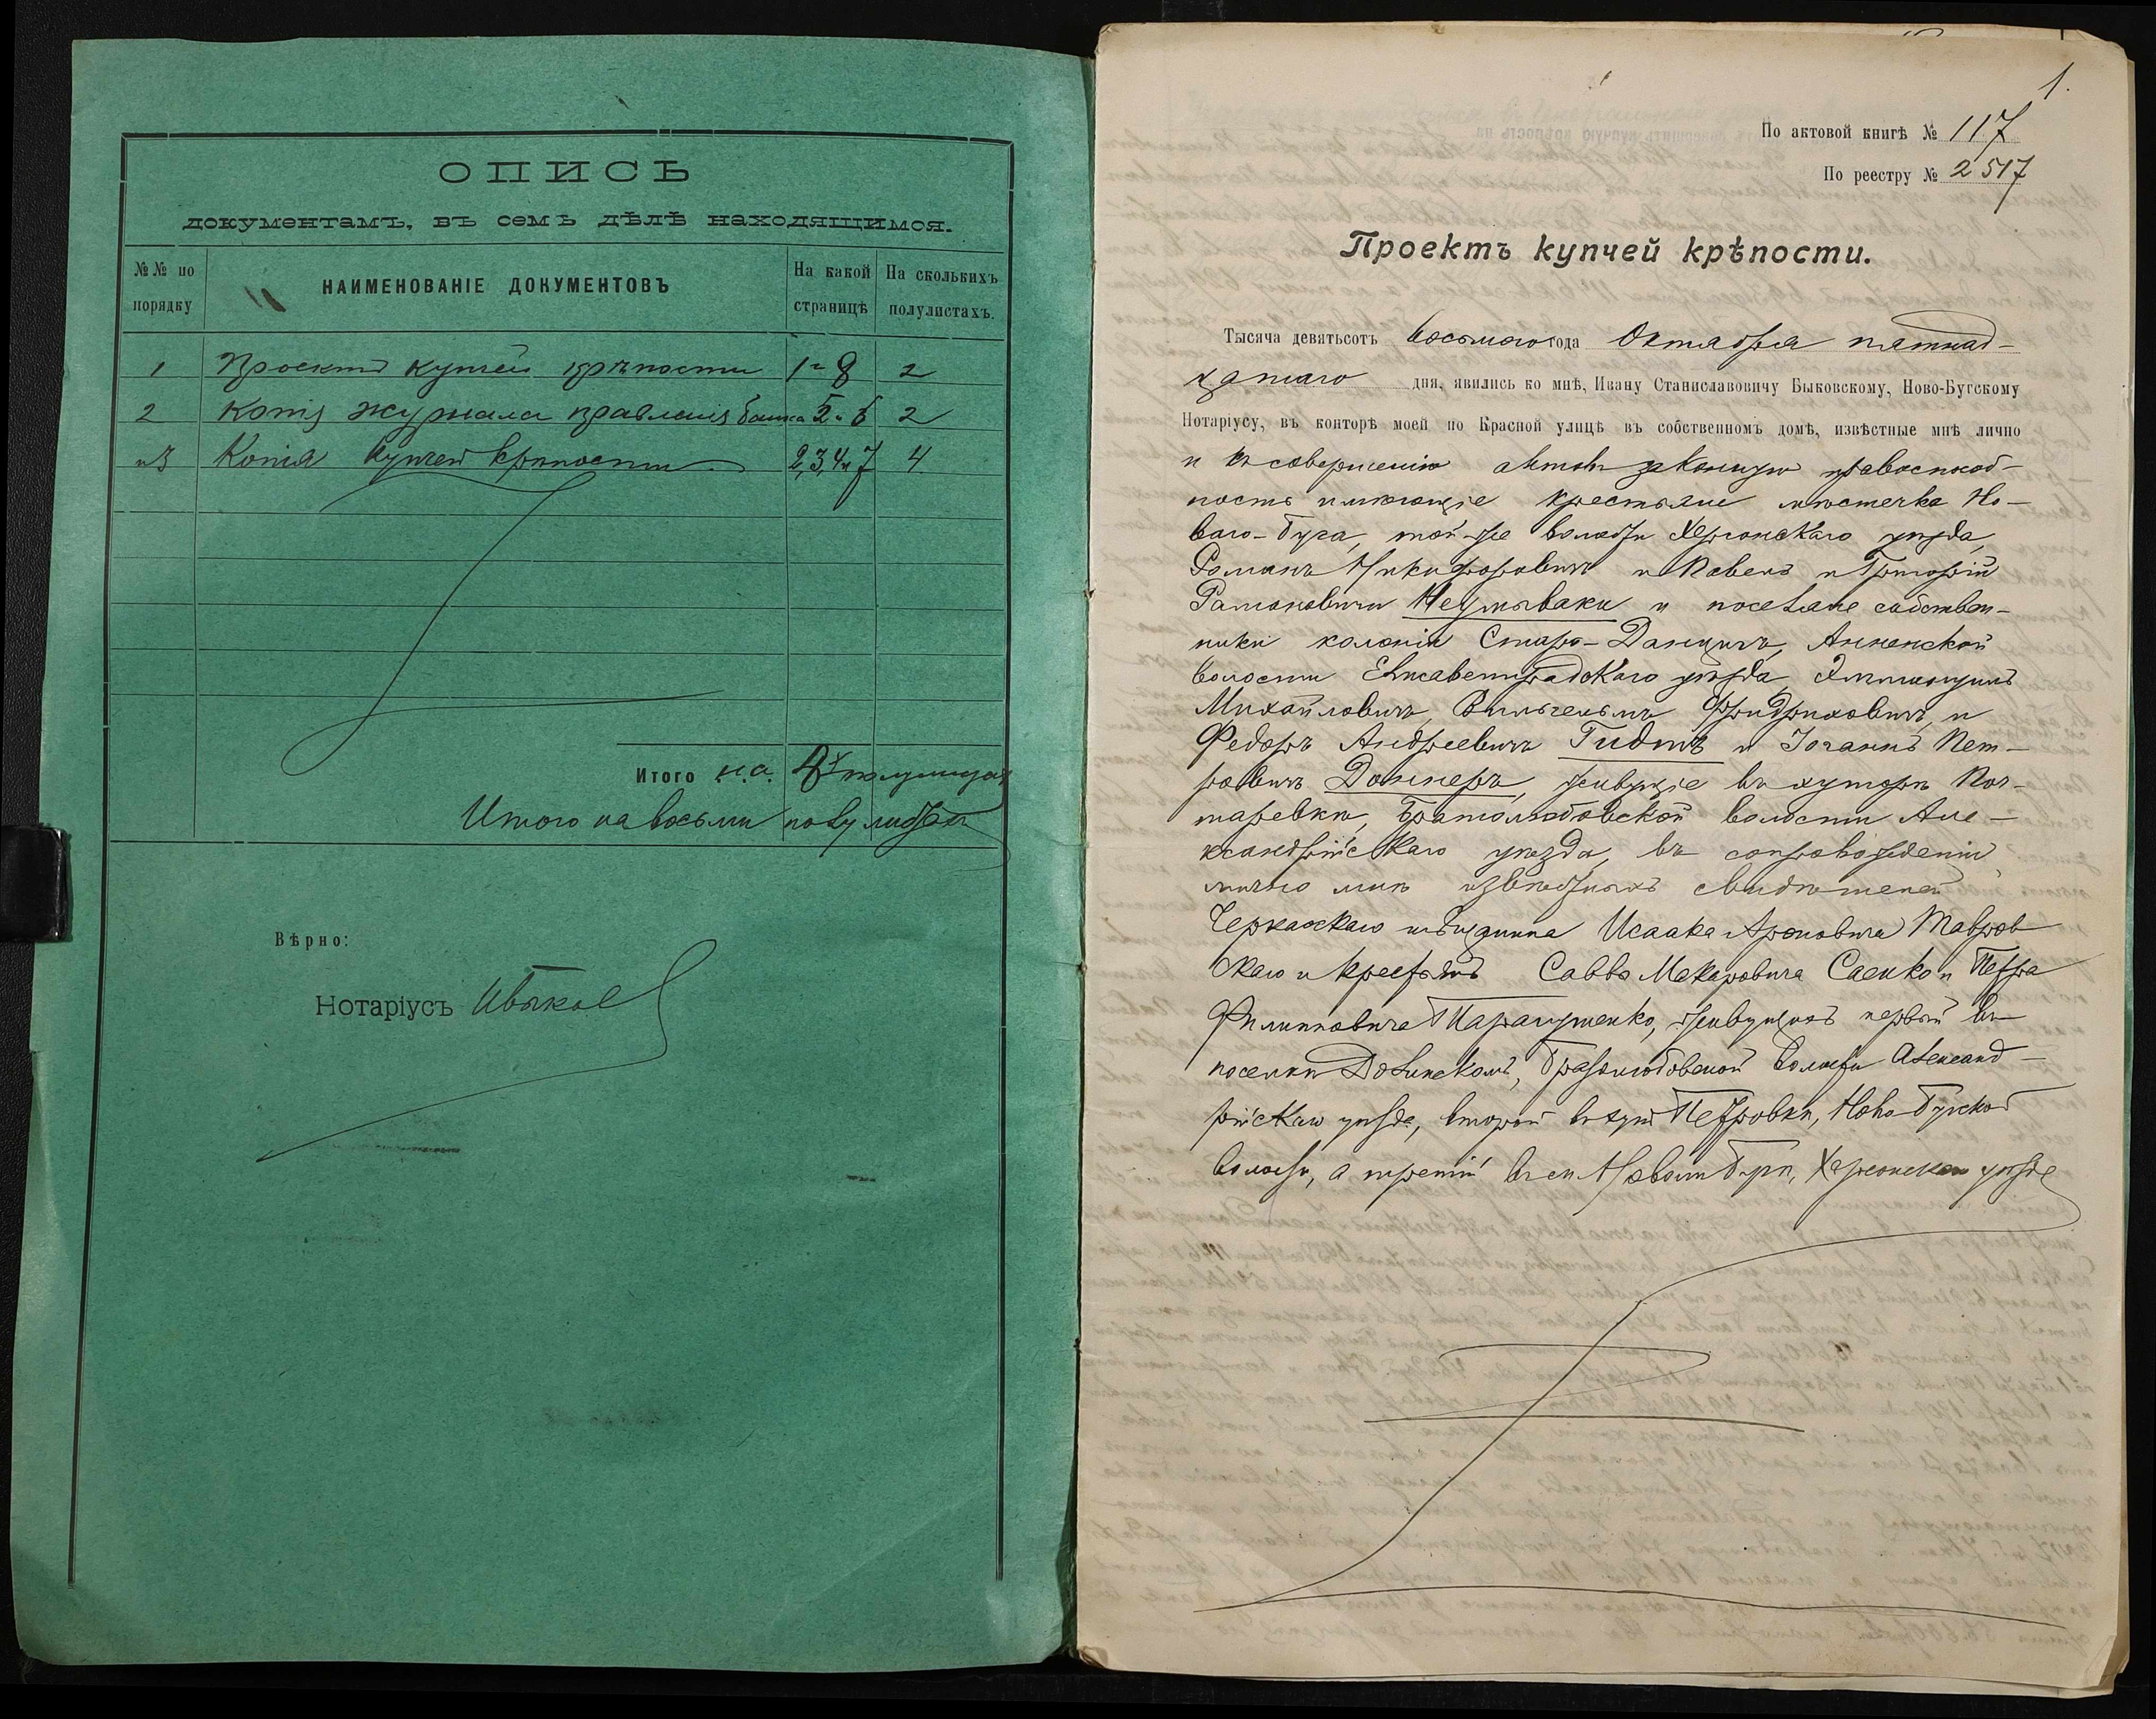 ОПИСЬ
документамъ, въ семъ дѣлѣ находящимся.
№№ по порядку
НАИМЕНОВАНІЕ ДОКУМЕНТОВЪ
На какой страницѣ
На сколькихъ полулистахъ.
1 Проектъ купчей крѣпости 1 и 8 2
2 Копія журнала правленія банка 5 и 6 2
3 Копія купчей крѣпости 2,3,4 и 7 4
Итого на 8 полулистахъ
Итого на восьми полулистахъ
Вѣрно:
Нотаріусъ
1.
По актовой книгѣ № 117
По реестру № 2517
Проектъ купчей крѣпости.
Тысяча девятьсотъ восьмого года Октября пятнад-
цатаго дня, явились ко мнѣ, Ивану Станиславовичу Быковскому, Ново-Бугскому
Нотаріусу, въ конторѣ моей по Красной улицѣ въ собственномъ домѣ, извѣстные мнѣ лично
и къ совершенію актовъ законную правоспособ-
ность имѣющіе крестьяне мѣстечка Но-
ваго-Буга, той-же волости Херсонскаго уѣзда,
Романъ Никифоровичъ и Павелъ и Григорій
Романовичи Неумываки и поселяне собствен-
ники колоніи Старо-Данцигъ, Анненской
волости Елисаветградскаго уѣзда
Михайловичъ, Вильгельмъ Фридриховичъ и
Федоръ Андреевичъ Гидтъ и Іоганнъ Пет-
ровичъ Доннеръ, живущіе въ хуторѣ
Братолюбовской волости Але-
ксандрійскаго уѣзда, въ сопровожденіи
лично мнѣ извѣстныхъ свидѣтелей
Черкасскаго мѣщанина Исаака Ароновича Тавров-
скаго и крестьянъ Саввы Макаровича Саенко и Петра
Филипповича живущихъ первый въ
поселкѣ Долинскомъ, Братолюбовской волости Александ-
рійскаго уѣзда, второй въ хут. Петровкѣ, Ново-Бугской
волости, а третій въ м. Новомъ Бугѣ, Херсонскаго уѣзда